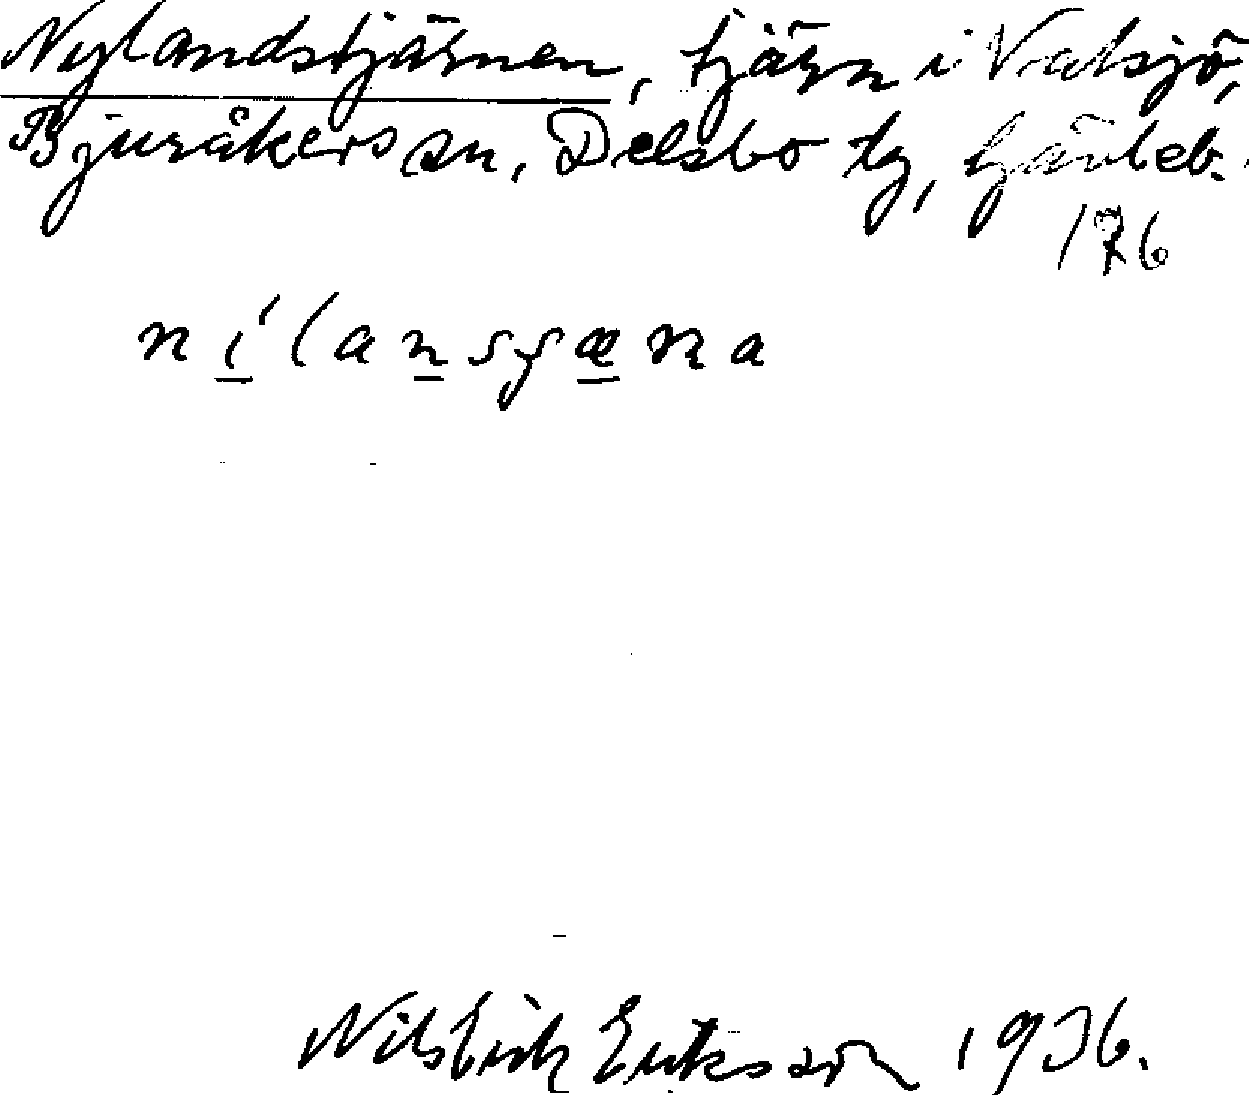 Nylandstjärnen, tjärn i Vatsjö,
Bjuråkers sn, Delsbo tg, Gävleb.
176
Nils Erik Eriksson 1936.